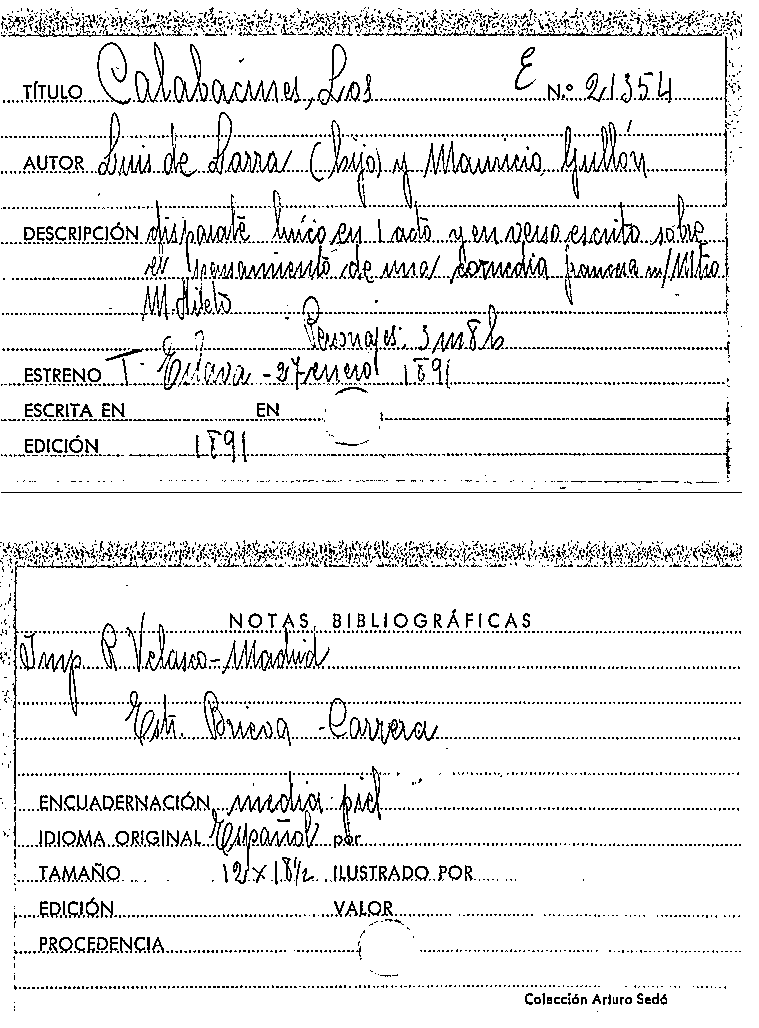 TÍTULO Calabacines, Los E N.º 21354
AUTOR Luis de Larra (hijo) y Mauricio Gullón
DESCRIPCIÓN disparate lírico en 1 acto y en verso escrito sobre
el pensamiento de una comedia francesa m/ Mtro
M. Nieto
Personajes: 3 m 8 h
ESTRENO T. Eslava - 27 enero 1891
ESCRITA EN EN
EDICIÓN 1891
NOTAS BIBLIOGRÁFICAS
Imp R. Velasco - Madrid
Estr. - Carrera
ENCUADERNACIÓN media piel
IDIOMA ORIGINAL Español por
TAMAÑO 12 x 18½ ILUSTRADO POR
EDICIÓN VALOR
PROCEDENCIA
Colección Arturo Sedó